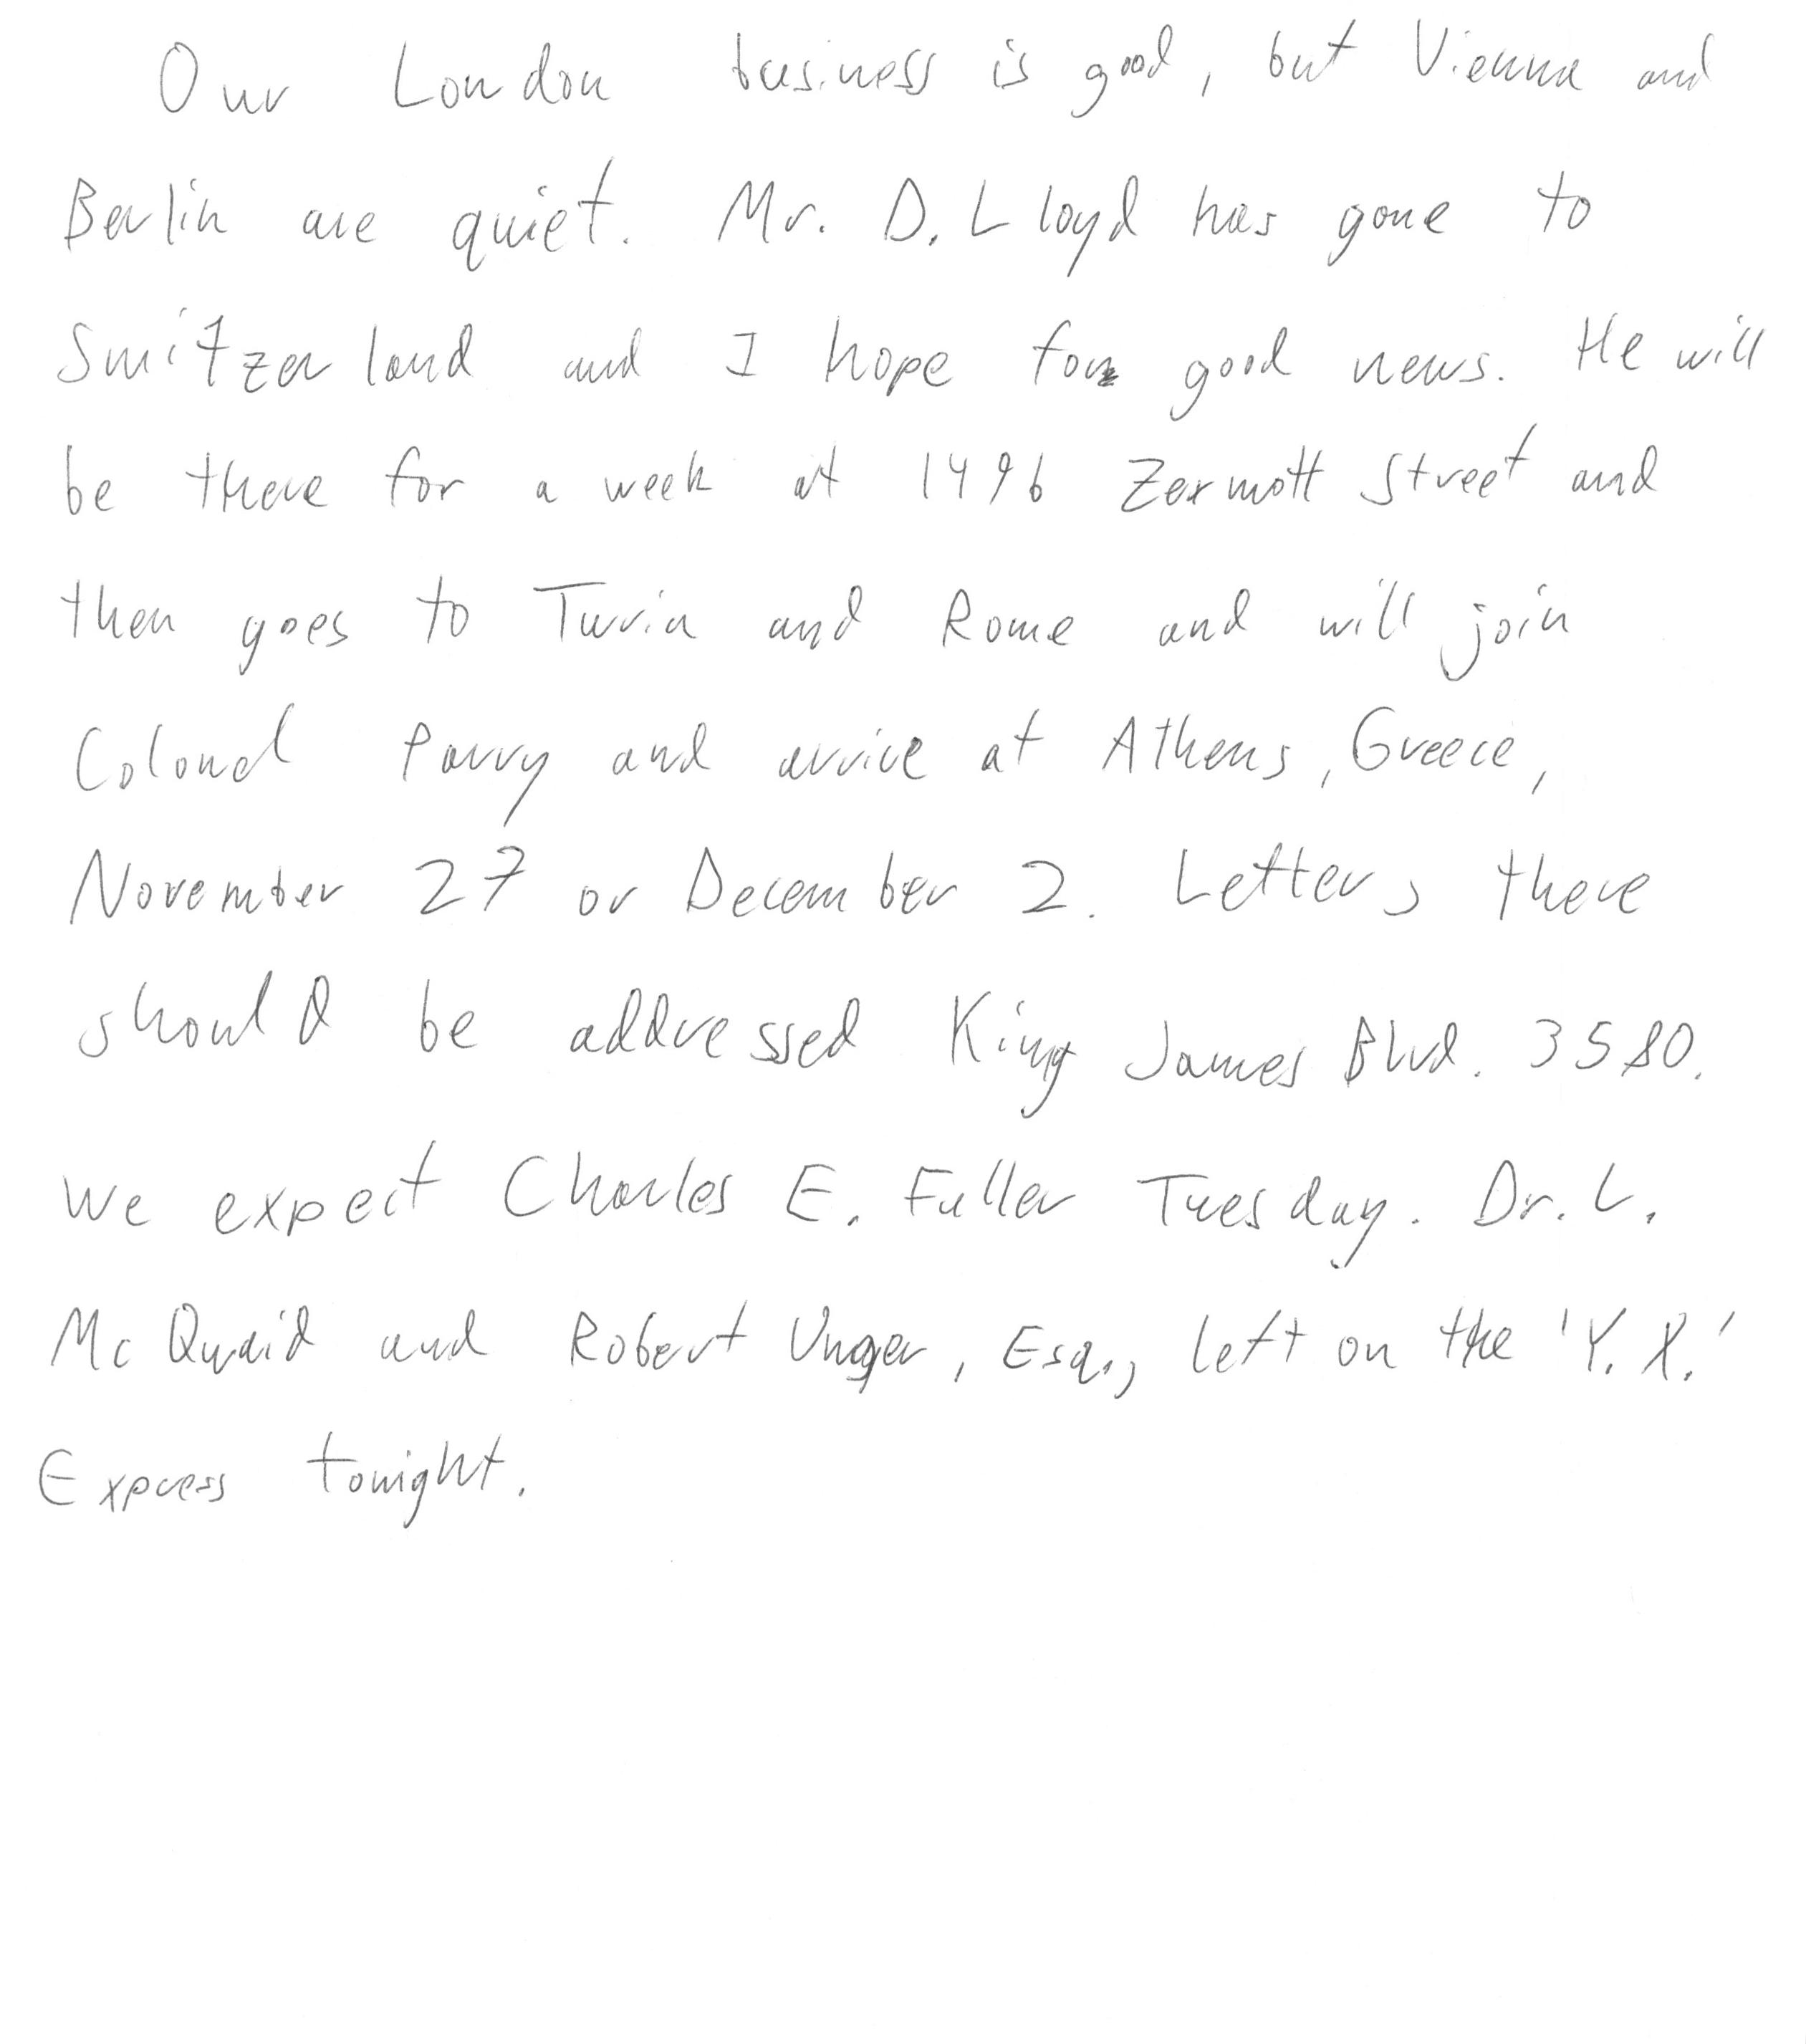 Our London business is good, but Vienna and
Berlin are quiet. Mr. D. Lloyd has gone to
Switzerland and I hope for good news. He will
be there for a week at 1496 Zermott Street and
then goes to Turin and Rome and will join
Colonel Parry and arrive at Athens, Greece,
November 27 or December 2. Letters there
should be addressed King James Blvd. 3580.
We expect Charles E. Fuller Tuesday. Dr. L.
McQuaid and Robert Unger, Esq., left on the 'Y. X.'
Express tonight.